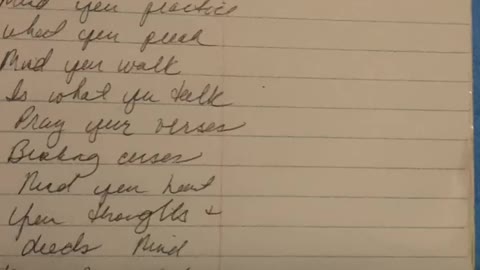 Mind you practice
what you preach
Mind you walk
Is what you talk
Pray your verses
Breaking curses
Mind you heart
your thoughts +
deeds Mind